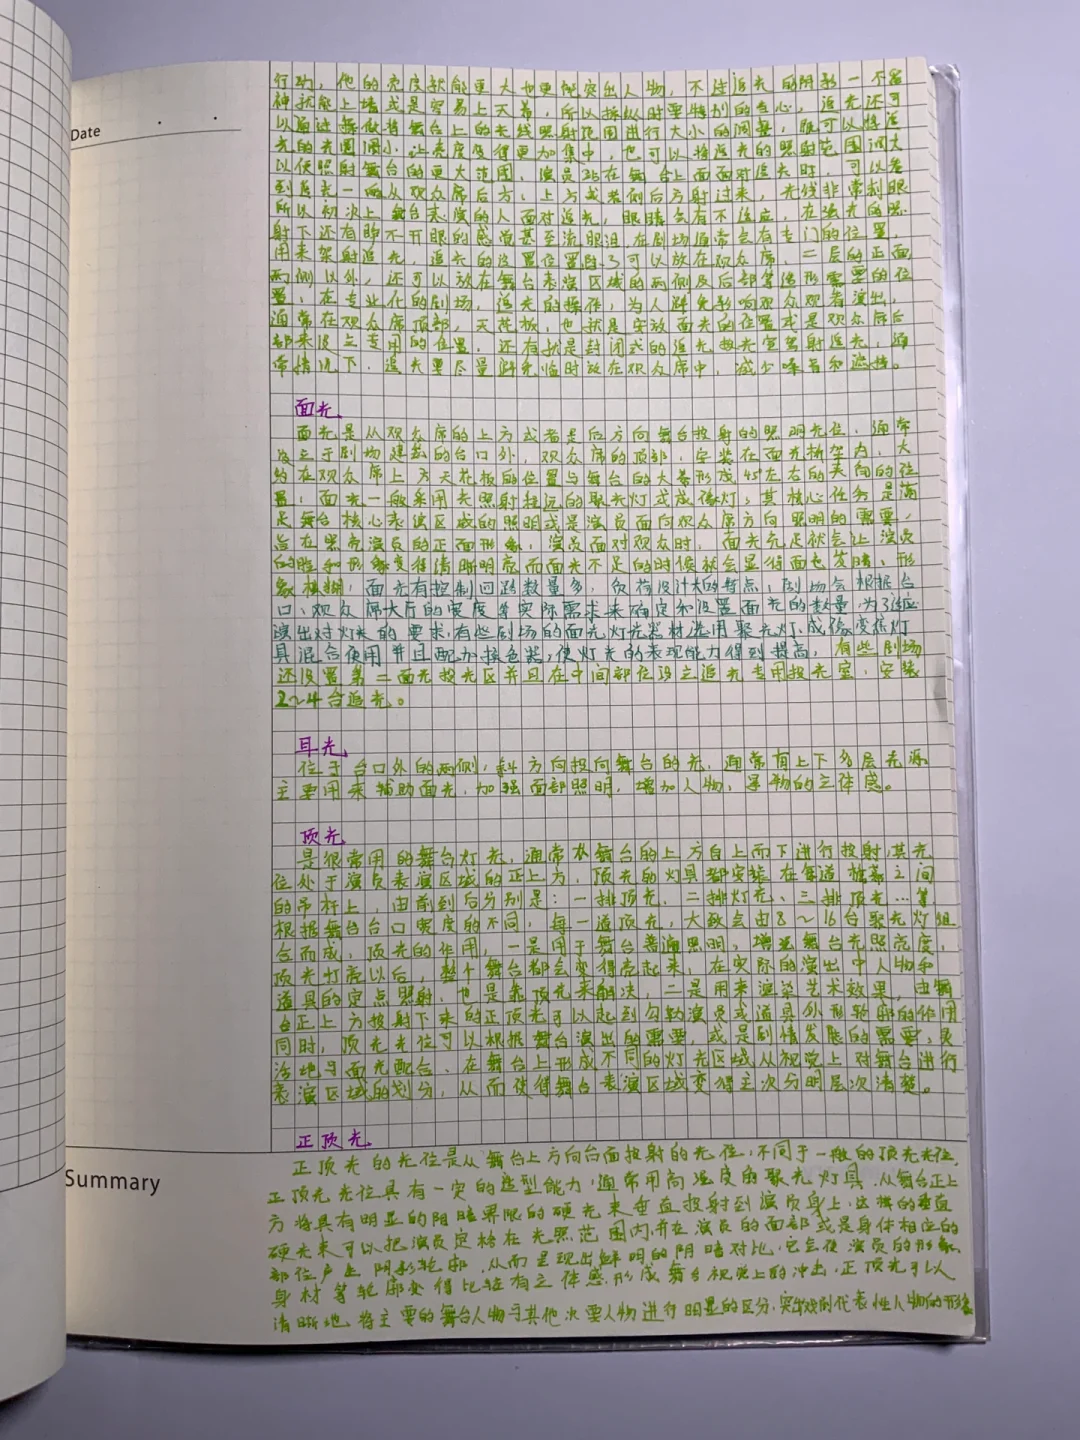 Date
行动，他的亮度就能更大也更能突出人物，不过追光的阴影一不留
神就能上墙或是容易上天幕，所以操纵时要特别的当心，追光还可
以通过缩放将舞台上的光线照射范围进行大小的调整，既可以将追
光的光圈调小，让亮度变得更加集中，也可以将追光的照射范围调大
以便照射舞台的更大范围，演员站在舞台上面面对追光时，可以看
到追光一般从观众席后方、上方或者侧后方射过来，光线非常刺眼
所以初次上舞台表演的人面对追光，眼睛会有不适应，在强光的照
射下还有睁不开眼的感觉甚至流眼泪，在剧场通常会有专门的位置，
用来架射追光，追光的设置位置除了可以放在观众席、二层的正面
两侧以外，还可以放在舞台表演区域的两侧及后部等造形需要的位
置，在专业化的剧场，追光的操作，为人避免影响观众观看演出，
通常在观众席顶部，天花板，也就是安放面光的位置或是观众席后
部来设立专用的位置，还有就是封闭式的追光投光室架射追光，通
常情况下，追光要尽量避免临时放在观众席中，减少噪音和遮挡。
面光
面光是从观众席的上方或者是后方向舞台投射的照明光位，通常
设立于剧场建筑的台口外，观众席的顶部，安装在面光桥架内，大
约在观众席上方天花板的位置与舞台的大幕形成45左右的夹向的位
置，面光一般采用光照射较远的聚光灯或成像灯，其核心任务是满
足舞台核心表演区域的照明或是演员面向观众席方向照明的需要，
旨在照亮演员的正面形象，演员面对观众时，面光充足就会让演员
的脸和形象变得清晰明亮而面光不足的时候就会显得面色发暗、形
象模糊，面光有控制回路数量多，负荷设计大的特点，剧场会根据台
口、观众席大厅的宽度等实际需求来确定和设置面光的数量，为了适应
演出对灯光的要求，有些剧场的面光灯光器材选用聚光灯、成像变焦灯
具混合使用并且配加换色器，使灯光的表现能力得到提高，有些剧场
还设置第二面光投光区并且在中间部位设立追光专用投光室，安装
2～4台追光。
耳光
位于台口外的两侧，斜方向投向舞台的光，通常有上下分层光源
主要用来辅助面光，加强面部照明，增加人物、景物的立体感。
顶光
是很常用的舞台灯光，通常在舞台的上方自上而下进行投射，其光
位处于演员表演区域的正上方，顶光的灯具都安装在每道檐幕之间
的吊杆上，由前到后分别是：一排顶光、二排灯光、三排顶光…等
根据舞台台口宽度的不同，每一道顶光，大致会由8～16台聚光灯组
合而成，顶光的作用，一是用于舞台普遍照明，增强舞台光照亮度，
顶光打亮以后，整个舞台都会变得亮起来，在实际的演出中人物和
道具的定点照射，也是靠顶光来解决，二是用来渲染艺术效果，由舞
台正上方投射下来的正顶光可以起到勾勒演员或道具外形轮廓的作用
同时，顶光光位可以根据舞台演出的需要，或是剧情发展的需要，灵
活地与面光配合、在舞台上形成不同的灯光区域从视觉上对舞台进行
表演区域的划分，从而使得舞台表演区域变得主次分明层次清楚。
正顶光
Summary
正顶光的光位是从舞台上方向台面投射的光位，不同于一般的顶光光位，
正顶光光位具有一定的造型能力，通常用高强度的聚光灯具，从舞台正上
方将具有明显的阴暗界限的硬光束垂直投射到演员身上，这样的垂直
硬光束可以把演员定格在光照范围内，并在演员的面部或是身体相应的
部位产生阴影轮廓，从而呈现出鲜明的阴暗对比，它会使演员的形象
身材等轮廓变得比较有立体感，形成舞台视觉上的冲击，正顶光可以
清晰地将主要的舞台人物与其他次要人物进行明显的区分，突出戏剧代表性人物的形象